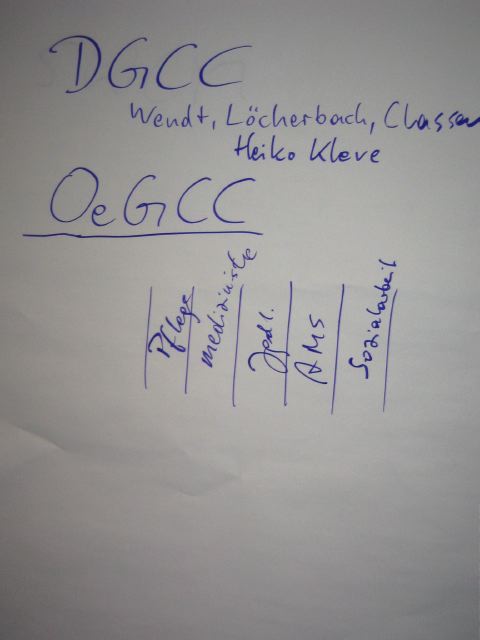 DGCC
Wendt, Löcherbach, Classen
Heiko Kleve
OeGCC
Pflege
medizinische
AMS
Sozialarbeit